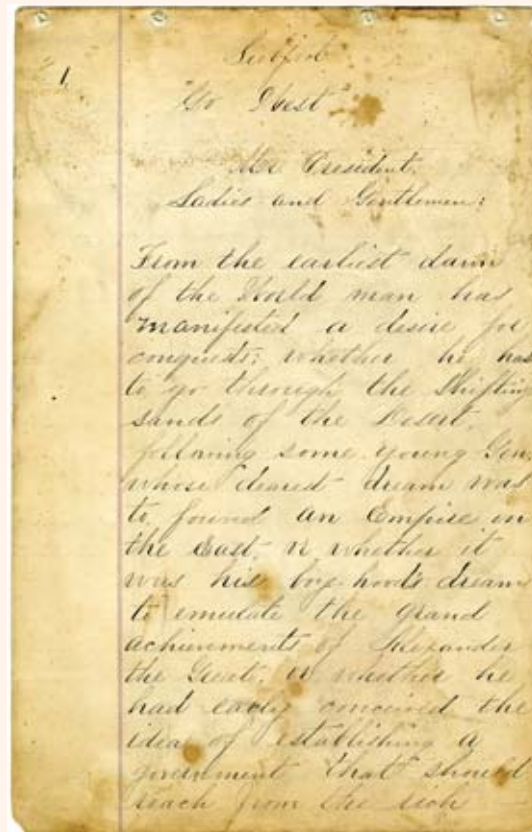 1.
Subject
"Go West"
Mr President.
Ladies and Gentlemen:
From the earliest dawn
of the World man has
manifested a desire for
conquests; whether he has
to go through the Shifting
sands of the Desert,
following some young Gen.
whose dearest dream was
to found an Empire in
the East, or whether it
was his boy-hood's dream
to emulate the grand
achievements of Alexander
the Great, or whether he
had early conceived the
idea of establishing a
government that should
reach from the rich